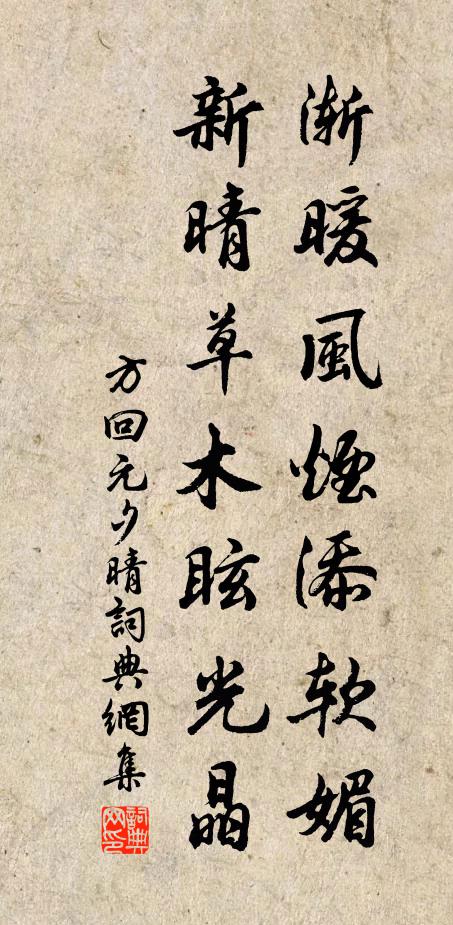 渐暖風煙添软媚
新晴草木眩光晶
方回元夕晴詞典網集
詞典网印